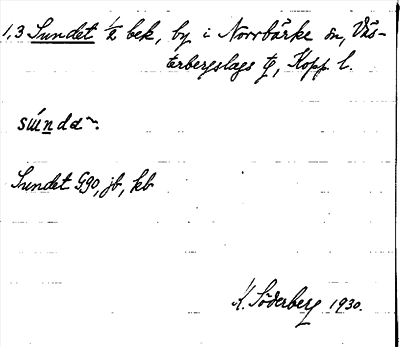 1,3 Sundet ½ bek, by i Norrbärke sn, Väs-
terbergslags tg, Kopp. l.
súndα~.
Sundet G90, jb, kb
K. Söderberg 1930.